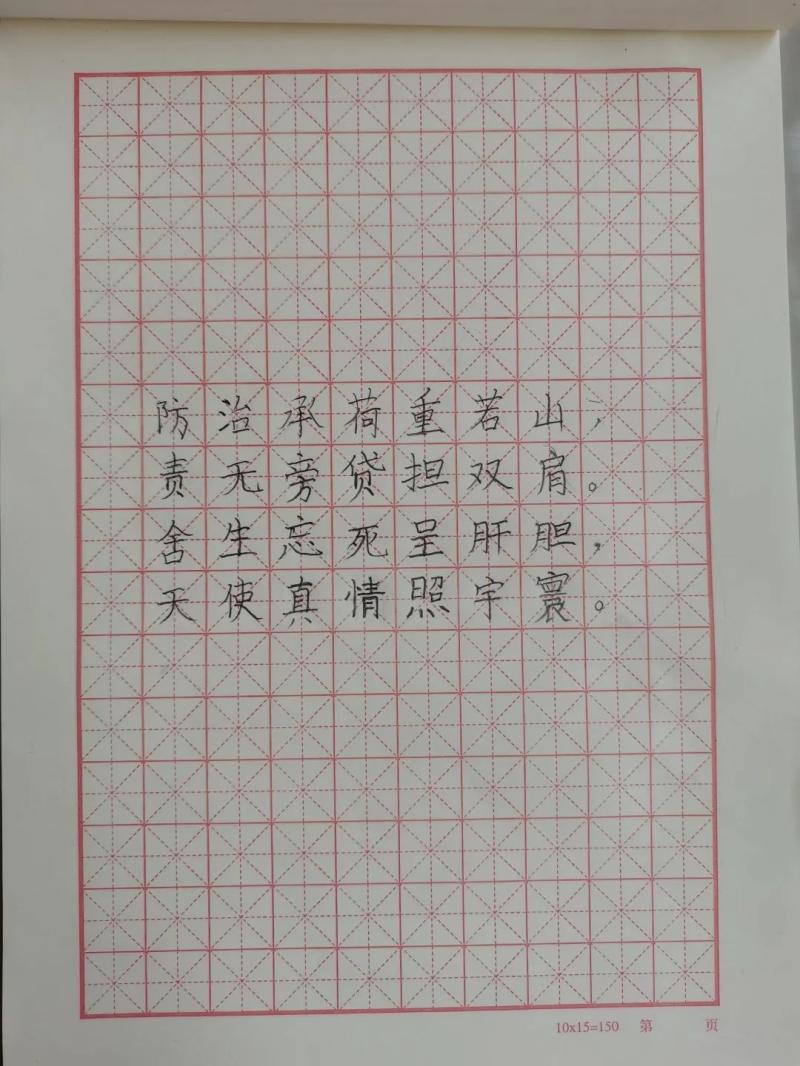 防治承荷重若山，
责无旁贷担双肩。
舍生忘死呈肝胆，
天使真情照宇寰。
10x15=150 第 页